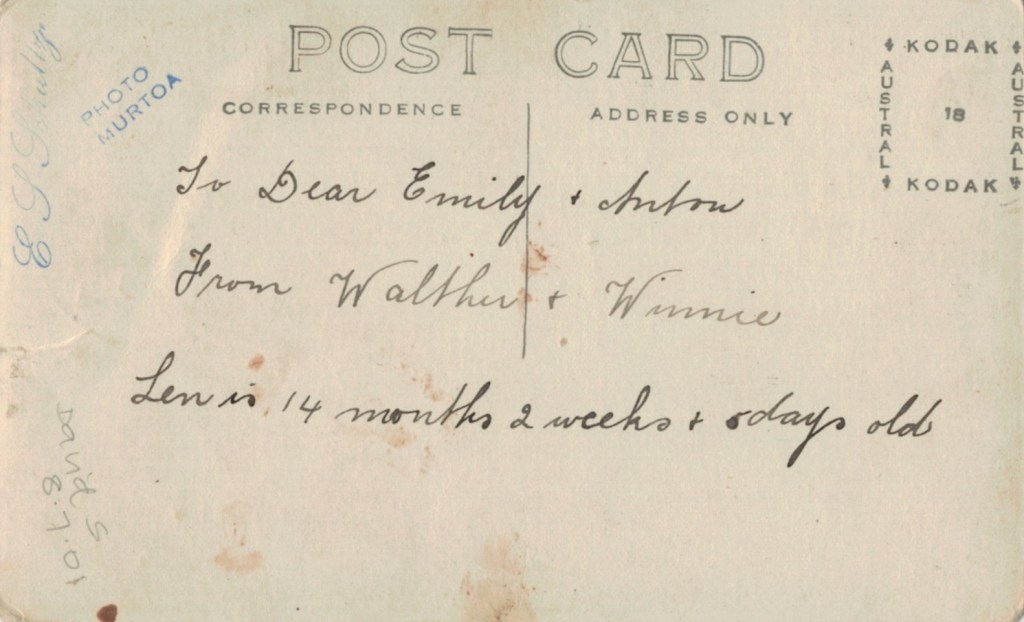 POST CARD
CORRESPONDENCE
ADDRESS ONLY
KODAK
AUSTRAL
18
AUSTRAL
KODAK
E S
PHOTO
MURTOA
To Dear Emily + Anton
From Walther + Winnie
Len is 14 months 2 weeks + 5 days old
David S
10.7.8